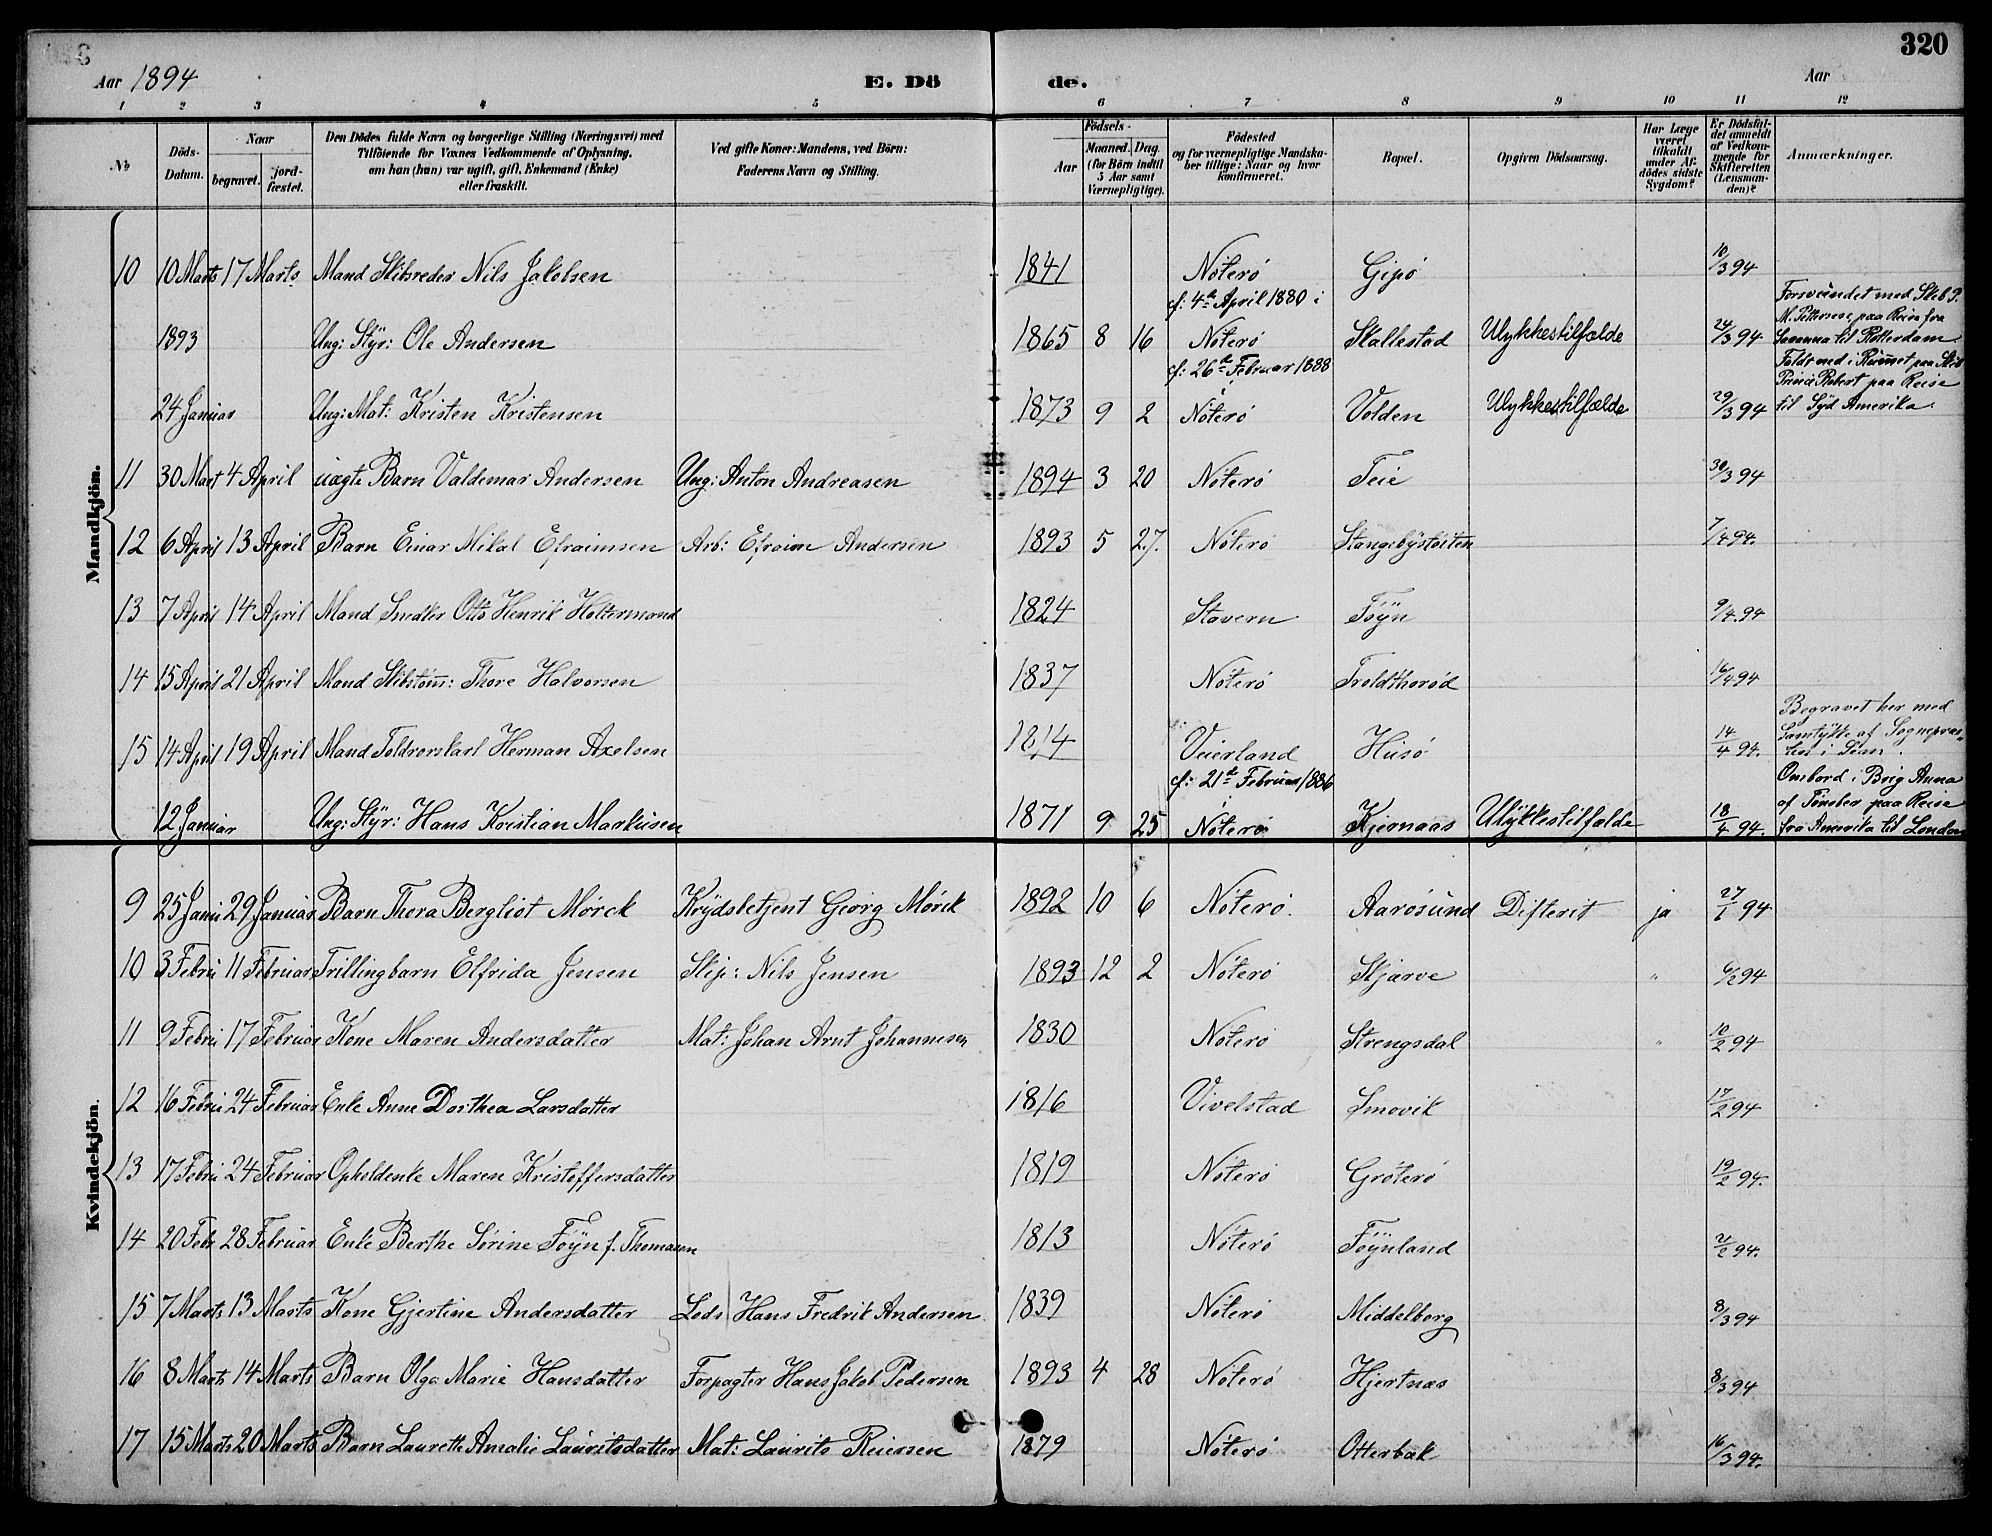 320
Aar 1894
E. Döde.
Aar
1 2 3 4 5 6 7 8 9 10 11 12
№
Döds-Datum.
Naar
begravet.
jord-fæstet.
Den Dödes fulde Navn og borgerlige Stilling (Næringsvei) med
Tilföiende for Voxnes Vedkommende af Oplysning,
om han (hun) var ugift, gift, Enkemand (Enke)
eller fraskilt.
Ved gifte Koner: Mandens, ved Börn:
Faderens Navn og Stilling.
Födsels-
Aar
Maaned. Dag.
(for Börn indtil
5 Aar samt
Værnepligtige).
Födested
og for værnepligtige Mandska-
ber tillige: Naar og hvor
konfirmeret.
Bopæl.
Opgiven Dödsaarsag.
Har Læge
været
tilkaldt
under Af-
dödes sidste
Sygdom?
Er Dödsfal-
det anmeldt
af Vedkom-
mende for
Skifteretten
(Lensman-
den)?
Anmærkninger.
Mandkjön.
10 10 Marts 17 Marts Mand Skibsreder Nils Jakobsen 1841 Nøterø Gipø 10/3 94
cf: 4de April 1880 i
1893 Ung: Styr: Ole Andersen 1865 8 16 Nøterø Skallestad Ulykkestilfælde 24/3 94
Forsvundet med Skib P.
M. Pettersen paa Reise fra
Savanna til Rotterdam
cf: 26de Februar 1888
i
24 Januar Ung: Mat: Kristen Kristensen 1873 9 2 Nøterø Volden Ulykkestilfælde 29/3 94
Faldt ned i Rummet paa Skib
Prinse Robert paa Reise
til Syd Amerika.
11 30 Mart 4 April uægte Barn Valdemar Andersen Ung: Anton Andreasen 1894 3 20 Nøterø Teie 30/3 94
12 6 April 13 April Barn Einar Mikal Efraimsen Arb: Efraim Andersen 1893 5 27. Nøterø Stangebystøiten 7/4 94.
13 7 April 14 April Mand Snedker Otto Henrik Holtermand 1824 Stavern Føyn 9/4 94
14 15 April 21 April Mand Skibstøm: Thore Halvorsen 1837 Nøterø Troldthorød 16/4 94
15 14 April 19 April Mand Toldrorskarl Herman Axelsen 1814 Veierland Husø 14/4 94.
Begravet her med
Samtykke af Sognepræs-
ten i Sem.
cf: 21de Februar 1886
i
12 Januar Ung: Styr: Hans Kristian Markusen 1871 9 25 Nøterø Kjernaas Ulykkestilfælde 18/4 94.
Ombord i Brig Anna
af Tønsber paa Reise
fra Amerika til London
Kvindekjön.
9 25 Janu 29 Januar Barn Thora Bergliot Mørck Krydsbetjent Georg Mørck 1892 10 6 Nøterø. Aarøsund Difterit ja 27/1 94
10 3 Febru 11 Februar Trillingbarn Elfrida Jensen Skip: Nils Jensen 1893 12 2 Nøterø Skjærve " 6/2 94
11 9 Febru 17 Februar Kone Maren Andersdatter Mat: Johan Arnt Johannesen 1830 Nøterø Strengsdal " 10/2 94
12 16 Febru 24 Februar Enke Anne Dorthea Larsdatter 1816 Vivelstad Smøvik 17/2 94
13 17 Febru 24 Februar Opholdenke Maren Kristoffersdatter 1819 Nøterø Grøterø 19/2 94.
14 20 Febr 28 Februar Enke Berthe Sørine Føyn f. Thomasen 1813 Nøterø Føynland 21/2 94.
15 7 Marts 13 Marts Kone Gjertine Andersdatter Lods Hans Fredrik Andersen 1839 Nøterø Middelborg 8/3 94
16 8 Marts 14 Marts Barn Olga Marie Hansdatter Forpagter Hans Jakob Pedersen 1893 4 28 Nøterø Hjertnes 8/3 94
17 15 Marts 20 Marts Barn Laurette Amalie Lauritsdatter Mat: Laurits Reiersen 1879 Nøterø Otterbæk 16/3 94.